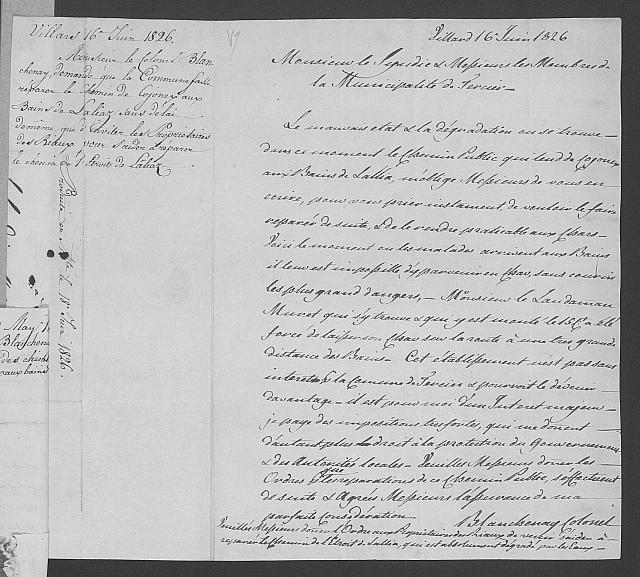 Villars 16e Juin 1826.
Monsieur le Colonel Blan-
chenay, demande que la Commune fasse
reparer le Chemin de Cojonex aux
Bains de Laliaz sans délai
de même que d'inviter les Propriétaires
des Beaux pour s'aider à réparer
le chemin à l'Etroit de Laliaz
Juin 1826.
May
Blanchenay
des chem
aux bains
Villard 16e Juin 1826
Monsieur le Sindic & Messieurs les Membres de
la Municipalité de
Le mauvais etat & la dégradation ou se trouve
dans ce moment le Chemin Public qui tend de Cojonex
aux Bains de Lallia, m'oblige Messieurs de vous en
ecrire, pour vous prier instament, de vouloir le faire
reparer de suite, & de le rendre praticable aux Chars
Voici le moment ou les malades arrivent aux Bains
il leur est impossible d'y parvenir en Char, sans courir
les plus grand dangers, – Monsieur le Landaman
Muret qui s'y trouve & qui y est monté le 15e a été
forcé de laisser son Char sur la route à une tres grande
distance des Bains – Cet établissement n'est pas sans
interet à la Comune de & pourroit le devenir
davantage – il est pour moi d'un Interet majeur –
je paye des impositions tres fortes, qui me donent
d'autant plus de droit à la protection du Gouvernement
& des Autorités locales – Veuilles Messieurs doner les
Ordres que les reparations de ce Chemin Public, s'effectuent
de suite & Agrées Messieurs l'assurance de ma
parfaite Considération
Blanchenay Colonel
Veuilles Messieurs doner l'Ordre aux Propriétaires des Beaux de venir s'aider à
reparer le Chemin de l'Etroit de Lallia, qui est absolument dégradé par les Eaux